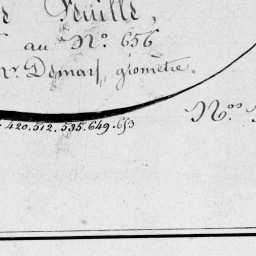 Feuille,
au N.º 656
Demars, géomètre.
N.ºˢ
420.512.535.649.653